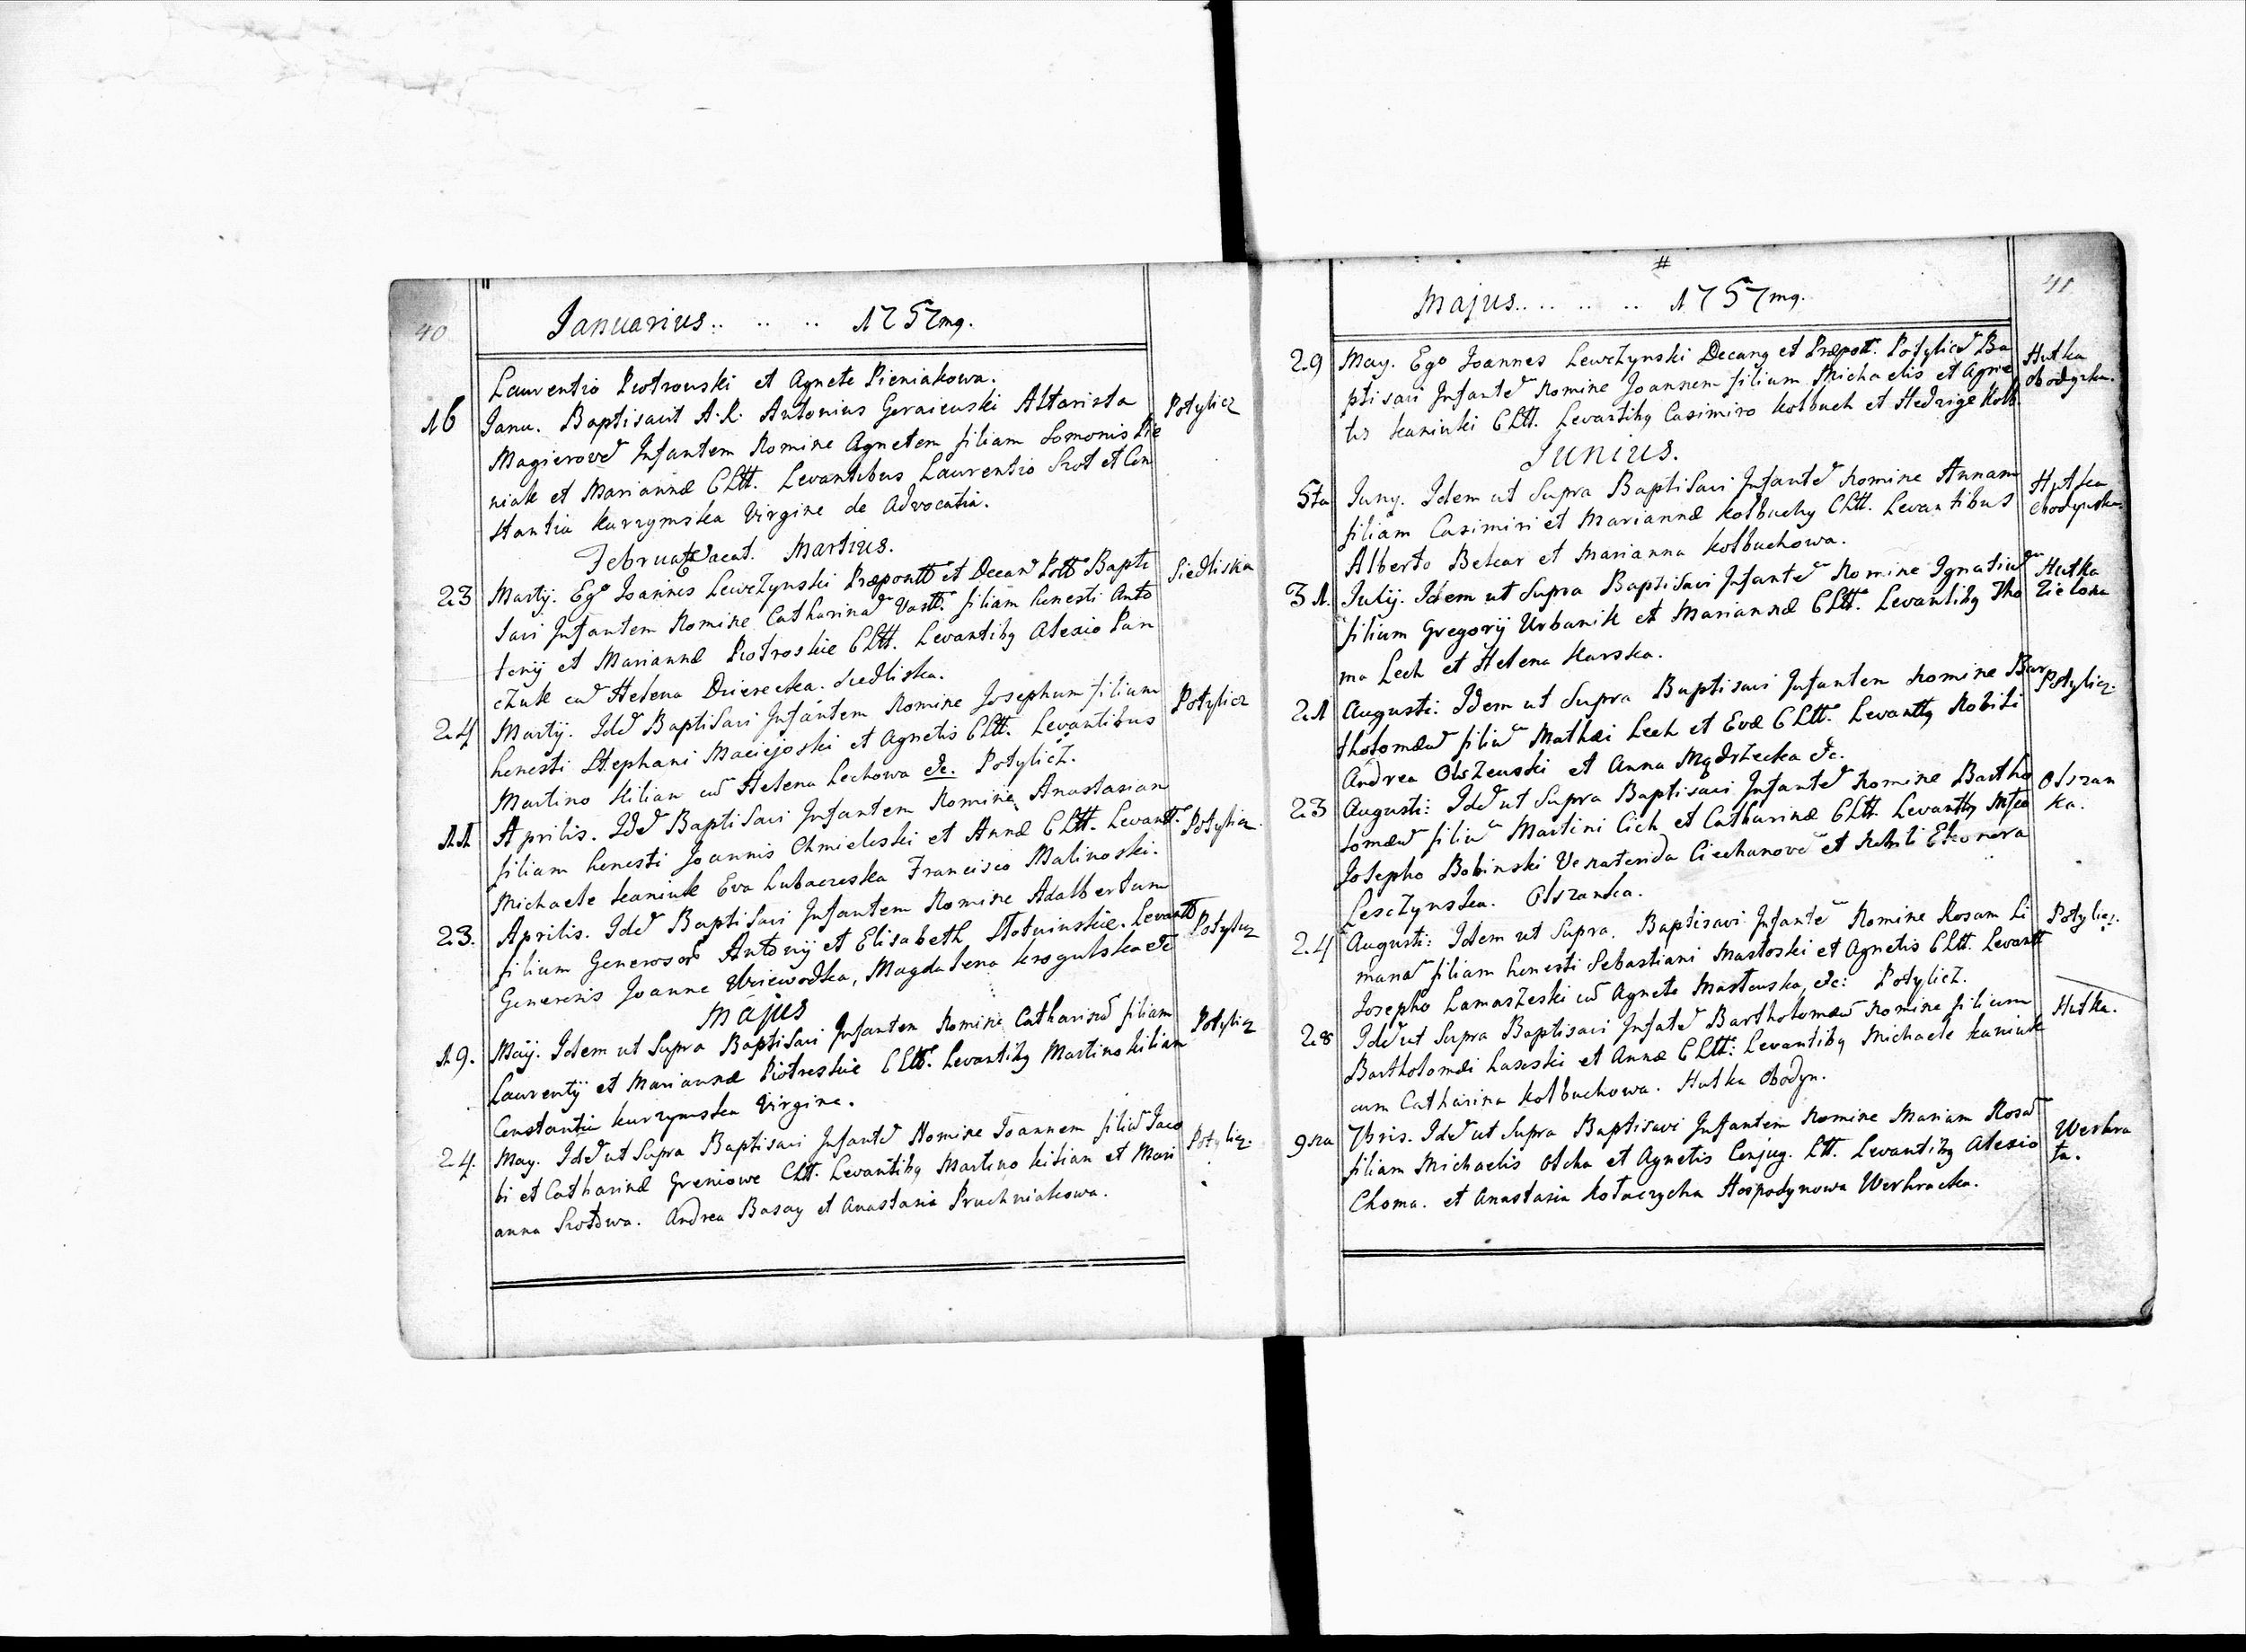 40
Januarius.. .. .. 1757mq.
Laurentio Piotrowski et Agnete Pieniakowa.
16 Janu. Baptisavit A. R. Antonius Geraiewski Altarista Potylicz
Magierove͠ Infantem Nomine Agnetem filiam Somonis Pie
niak et Mariannæ CLtt. Levantibus Laurentio Szot et Con
stantia Kurzymska Virgine de Advocatia.
Februa vacat. Martius.
23 Martij. Ego Joannes Lewczynski Præpontt et Decan Pott Bapti Siedliska
savi Infantem Nomine Catharina͠ filiam honesti Anto
tonij et Mariannæ Piotroskie CLtt. Levantibq Alexio Pan
czuk cu͠ Helena Dzierecka. Siedliska.
24 Martij. Ide͠ Baptisavi Infantem Nomine Josephum filium Potylicz
honesti Stephani Maciejoski et Agnetis CLtt. Levantibus
Martino Kilian cu͠ Helena Lechowa &c. Potylicz.
11 Aprilis. Ide͠ Baptisavi Infantem Nomine Anastasiam Potylicz.
filiam honesti Joannis Chmieleski et Annæ CLtt. Levantt.
Michaele Kaniuk Eva Lubaczeska Francisco Malinoski.
23. Aprilis. Ide͠ Baptisavi Infantem Nomine Adalbertum Potylicz
filium Generosor Antonij et Elisabeth Slotwinskie. Levantt
Generosis Joanne Woiewodka, Magdalena Krogulska etc
Majus
19. Maij. Idem ut Supra Baptisavi Infantem Nomine Catharina͠ filiam Potylicz
Laurentij et Mariannæ Piotreskie CLtt. Levantibq Martino Kilian
Constantia Kurzymska Virgine.
24. May. Ide͠ ut Supra Baptisavi Infante͠ Nomine Joannem filiu͠ Jaco Potylicz.
bi et Catharinæ Greniowe CLtt. Levantibq Martino Kilian et Mari
anna Szotowa. Andrea Basay et Anastasia Pruchniakowa.
41
Majus.. .. .. .. 1757mq.
29 May. Ego Joannes Lewczynski Decanq et Præpott. Potylice͠ Ba Hutka
ptisavi Infante͠ Nomine Joannem filium Michaelis et Agne Obodynska.
tis Kaniuki CLtt. Levantibq Casimiro Kolbuch et Hedvige Kolb.
Junius.
5ta Juny. Idem ut Supra Baptisavi Infante͠ Nomine Annam Hutka
filiam Casimiri et Mariannæ Kolbuchy CLtt. Levantibus Obodynska.
Alberto Betcar et Marianna Kolbuchowa.
31. Julij. Idem ut Supra Baptisavi Infante͠ Nomine Ignatiu͠ Hutka
filium Gregorij Urbanik et Mariannæ CLtt. Levantibq Tho Zielona
ma Lech et Helena Karska.
21 Augusti: Idem ut Supra Baptisavi Infantem Nomine Bar Potylicz.
tholomæu͠ filiu͠ Mathæi Lech et Evæ CLtt. Levanttq Nobili
Andrea Olszewski et Anna Mądrzecka &c.
23 Augusti: Ide͠ ut Supra Baptisavi Infante͠ Nomine Bartho Olszan
lomæu͠ filiu͠ Martini Cich et Catharinæ CLtt. Levanttq Mfco ka.
Josepho Bobinski Venatenda Ciechanove͠ et Nobili Eleonora
Lesczynska. Olszanka.
24 Augusti: Idem ut Supra. Baptisavi Infante͠ Nomine Rosam Li Potylicz.
mana͠ filiam honesti Sebastiani Mastoski et Agnetis CLtt. Levantt
Josepho Lamaszeski cu͠ Agnete Mastouska, &c: Potylicz.
28 Ide͠ ut Supra Baptisavi Infate͠ Bartholomæu͠ Nomine filium Hutka.
Bartholomæi Laseski et Annæ CLtt: Levantibq Michaele Kaniuk
cum Catharina Kolbuchowa. Hutka Obodyn.
9na 7bris. Ide͠ ut Supra Baptisavi Infantem Nomine Mariam Rosa͠ Werhra
filiam Michaelis Olcha et Agnetis Conjug. Ltt. Levantibq Alexio ta.
Choma. et Anastasia Kolaczycha Hospodynowa Werhracka.